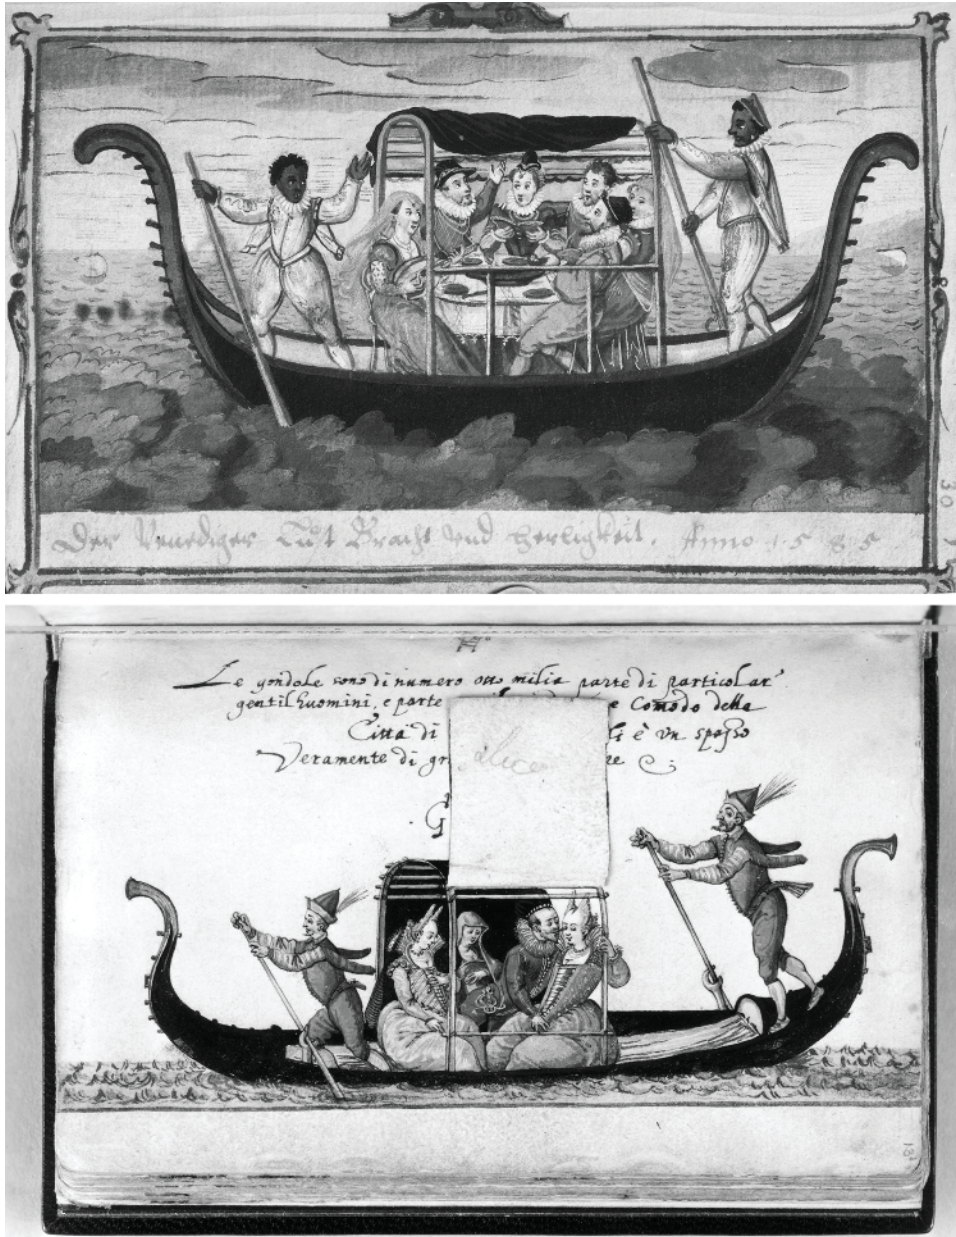 Der Venediger Lust Pracht vnd herligkeit. Anno 1585
30
H°
Le gondole sono di numero otto milia parte di particolar'
gentilhuomini, e parte e Comodo della
Citta di li è vn spasso
Veramente di gr re
G
131